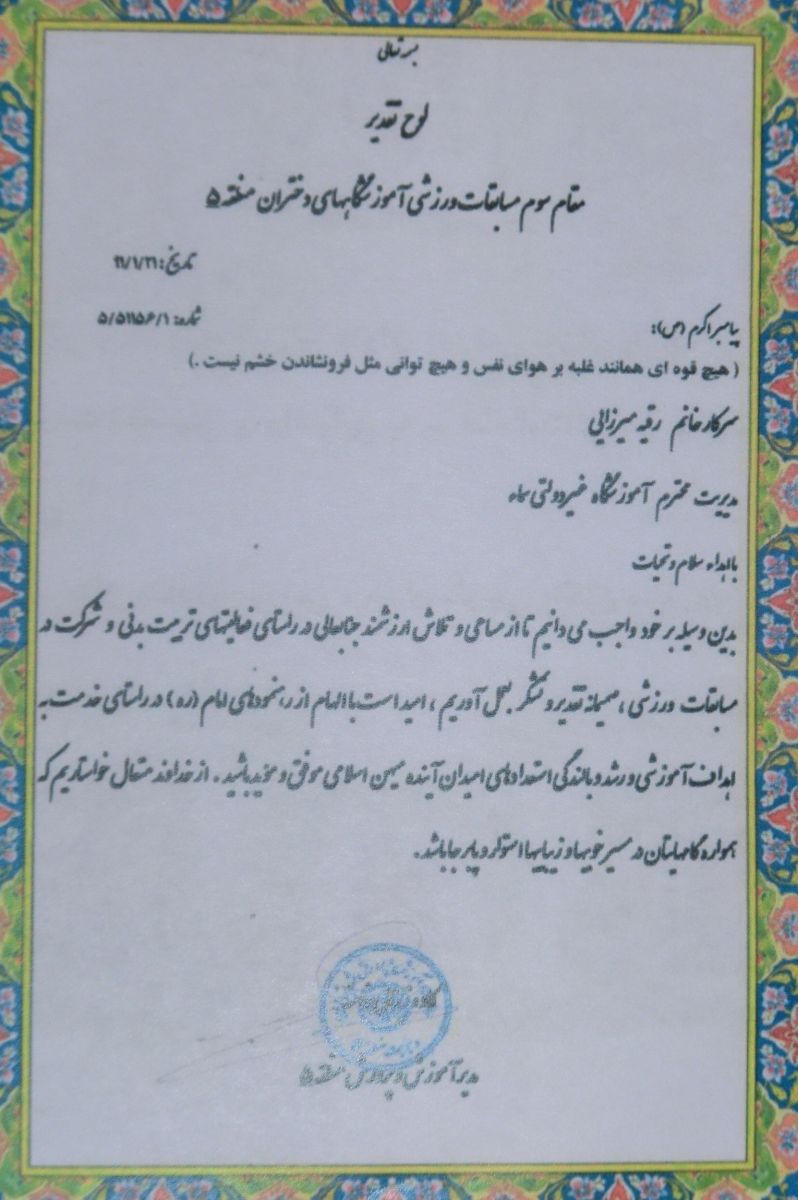 بسمه تعالی
لوح تقدیر
مقام سوم مسابقات ورزشی آموزشگاههای دختران منطقه ۵
تاریخ: ۹۱/۱/۲۱
شماره: ۵/۵۱۱۵۶/۱
پیامبر اکرم (ص):
( هیچ قوه ای همانند غلبه بر هوای نفس و هیچ توانی مثل فرونشاندن خشم نیست .)
سرکار خانم رقیه میرزایی
مدیریت محترم آموزشگاه غیردولتی سماء
با اهداء سلام و تحیات
بدین وسیله بر خود واجب می دانیم تا از مساعی و تلاش ارزشمند جنابعالی در راستای فعالیتهای تربیت بدنی و شرکت در
مسابقات ورزشی ، صمیمانه تقدیر و تشکر بعمل آوریم ، امید است با الهام از رهنمودهای امام (ره) در راستای خدمت به
اهداف آموزشی و رشد و بالندگی استعدادهای امیدان آینده میهن اسلامی موفق و موید باشید . از خداوند متعال خواستاریم که
همواره گامهایتان در مسیر خوبیها و زیباییها استوار و پابرجا باشد .
مدیر آموزش و پرورش منطقه ۵